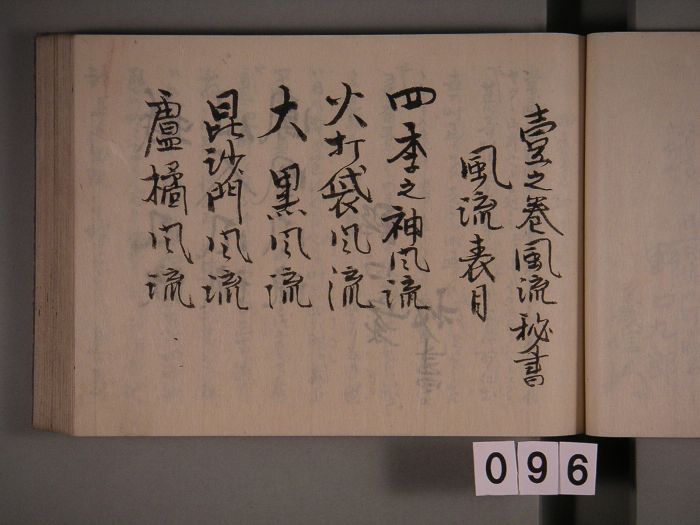 壹之巻風流秘書
風流表目
四季之神風流
火打袋風流
大黒風流
毘沙門風流
盧橘風流
096